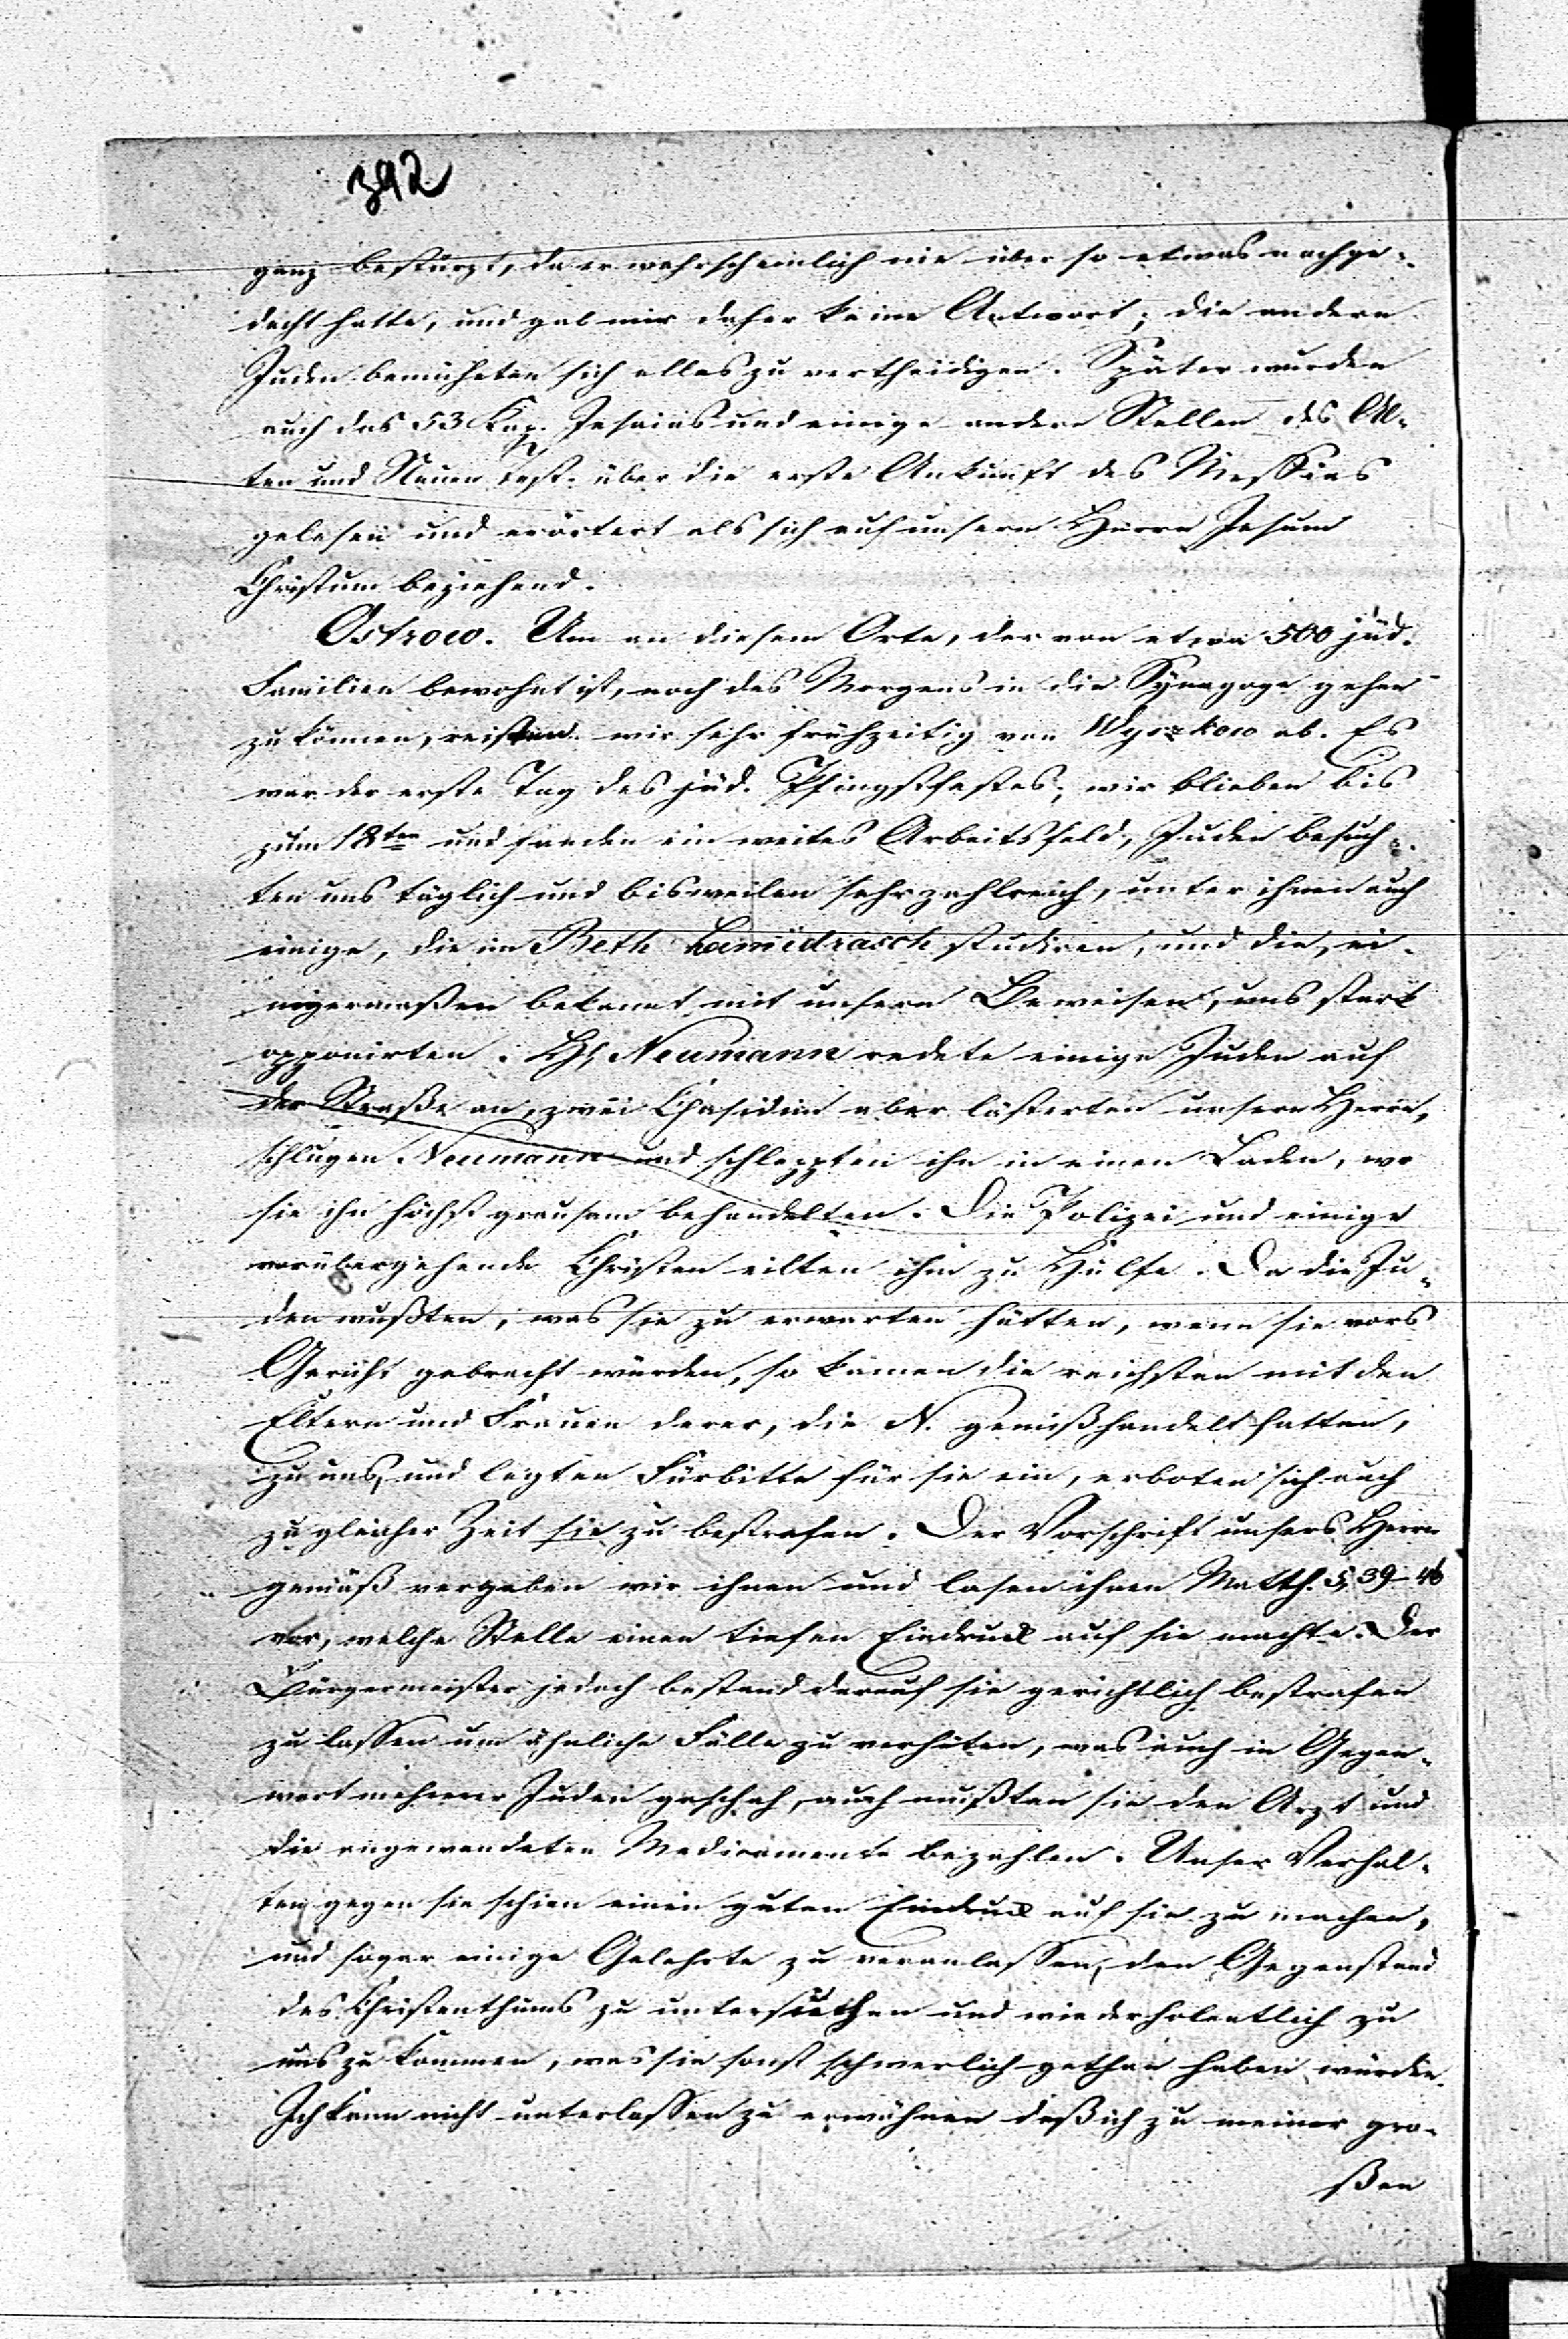 392
ganz bestürzt, da er wahrscheinlich nie über so etwas nachge-
dacht hatte, und gab mir daher keine Antwort; die andern
Juden bemüheten sich alles zu vertheidigen. Später wurden
auch das 53 Kap. Jesaias und einige andere Stellen des Al-
ten und Neuen Test. über die erste Ankunft des Messias
gelesen und erörtert als sich auf unsern Herrn Jesum
Christum beziehend.
Ostrow. Um an diesem Orte, der von etwa 500 jüd.
Familien bewohnt ist, noch des Morgens in die Synagoge gehen
zu können, reisten wir sehr frühzeitig von Wyszkow ab. Es
war der erste Tag des jüd. Pfingstfestes; wir blieben bis
zum 18ten und fanden ein weites Arbeitsfeld, Juden besuch-
ten uns täglich und bisweilen sehr zahlreich, unter ihnen auch
einige, die im Beth Hamidrasch studiren, und die, ei-
nigermaßen bekannt mit unsern Beweisen, uns stark
opponirten. Neumann redete einige Juden auf
der Straße an, zwei Chasidim aber lästerten unsern Herrn,
schlugen Neumann und schleppten ihn in einen Laden, wo
sie ihn höchst grausam behandelten. Die Polizei und einige
vorübergehende Christen eilten ihm zu Hülfe. Da die Ju-
den wußten, was sie zu erwarten hätten, wenn sie vors
Gericht gebracht würden, so kamen die reichsten mit den
Eltern und Frauen derer, die N. gemißhandelt hatten,
zu uns, und legten Fürbitte für sie ein, erboten sich auch
zu gleicher Zeit sie zu bestrafen. Der Vorschrift unsers Herrn
gemäß vergaben wir ihnen und lasen ihnen Matth. 5, 39–46
vor, welche Stelle einen tiefen Eindruck auf sie machte. Der
Bürgermeister jedoch bestand darauf sie gerichtlich bestrafen
zu lassen um ähnliche Fälle zu verhüten, was auch in Gegen-
wart mehrerer Juden geschah, auch mußten sie den Arzt und
die angewendeten Medicamente bezahlen. Unser Verhal-
ten gegen sie schien einen guten Eindruck auf sie zu machen,
und sogar einige Gelehrte zu veranlassen, den Gegenstand
des Christenthums zu untersuchen und wiederholentlich zu
uns zu kommen, was sie sonst schwerlich gethan haben würden.
Ich kann nicht unterlassen zu erwähnen daß ich zu meiner gro-
ßen